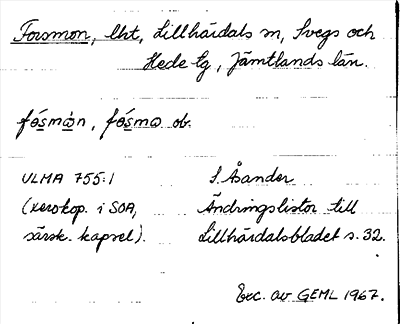 Forsmon, lht, Lillhärdals sn, Svegs och
Hede tg, Jämtlands län.
fo̱smo̱n, fo̱smo̱ ob.
ULMA 755:1 S. Åsander
(xerokop. i SOA, Ändringslistor till
särsk. kapsel). Lillhärdalsbladet s. 32.
Exc. av GEML 1967.